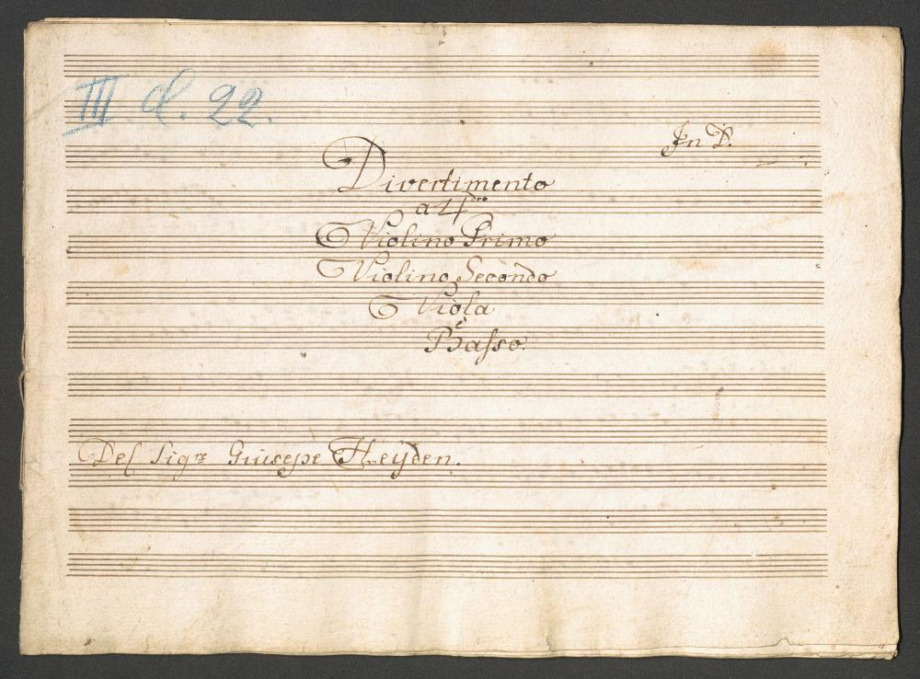 III d. 22.
In D.
Divertimento
a 4tro
Violino Primo
Violino Secondo
Viola
è
Basso.
Del Sigre Giusepe Heyden.